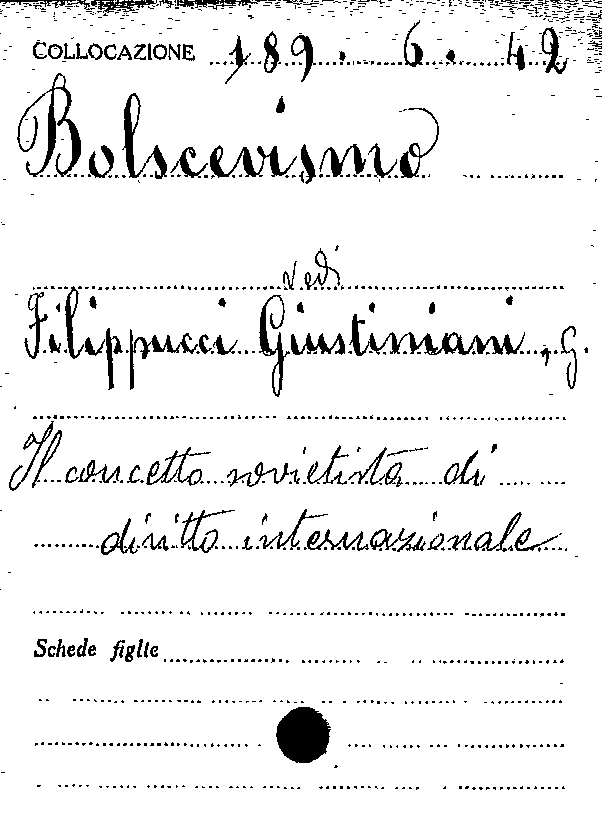 COLLOCAZIONE 189. 6. 42
Bolscevismo
vedi
Filippucci Giustiniani, G.
Il concetto sovietista di
diritto internazionale
Schede figlie